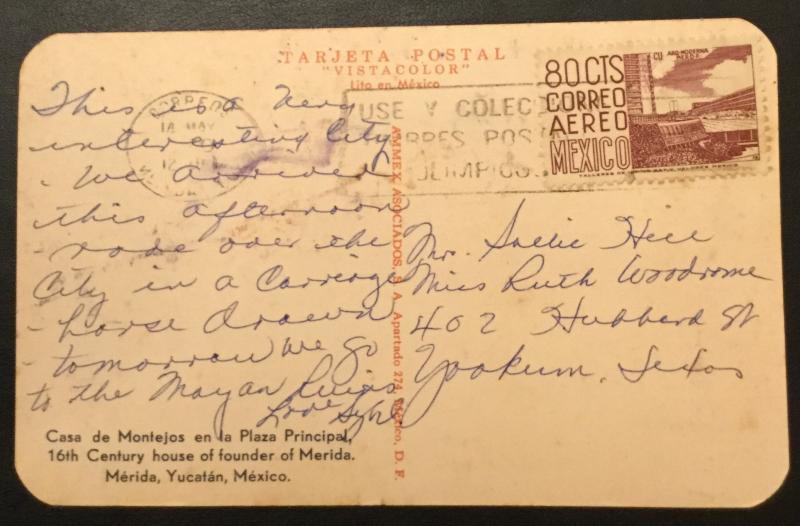 TARJETA POSTAL
"VISTACOLOR"
Lito en México
This is a very
interesting City
- We arrived
this afternoon
- rode over the
City in a Carriage
- horse drawn
- tomorrow we go
to the Mayan Ruins
Love
Casa de Montejos en la Plaza Principal,
16th Century house of founder of Merida.
Mérida, Yucatán, México.
AMMEX ASOCIADOS, S. A. Apartado 274, México, D. F.
CORREOS
MAY
12
USE Y COLEC
BRES POS
OLIMPICOS
80 CTS
CORREO
AEREO
MEXICO
CU ARQ. MODERNA
AEREO
Sallie Hill
Miss Ruth Woodrome
402 Hubbard St
Yoakum, Texas